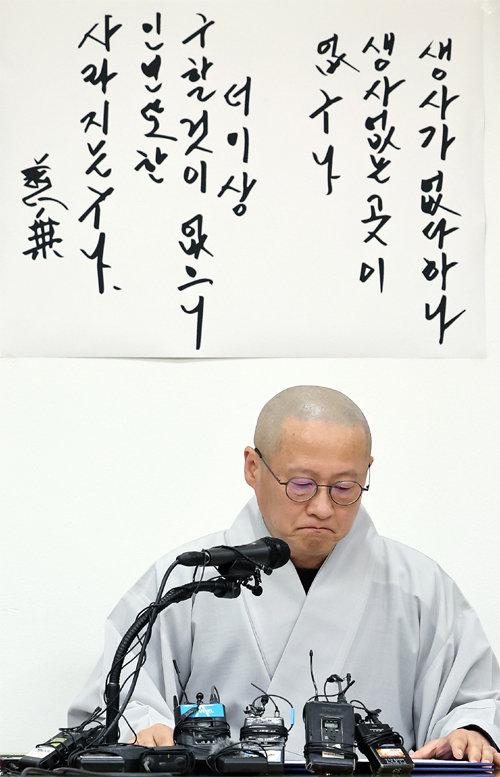 생사가 없다하나
생사없는 곳이
없구나
더이상
구할것이 없으니
인연또한
사라지는구나.
慈無